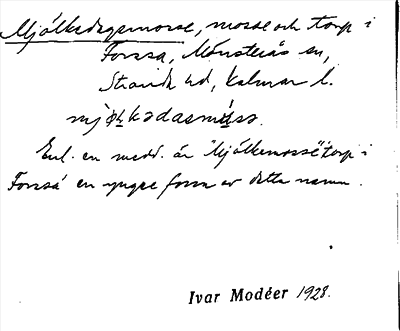 Mjölkedagsmosse, mosse och torp i
Forssa, Mönsterås sn,
Stranda hd, Kalmar l.
Enl. en medd. är "Mjölkemosse" torp i
Forsså en yngre form av detta namn.
Ivar Modéer 1928.